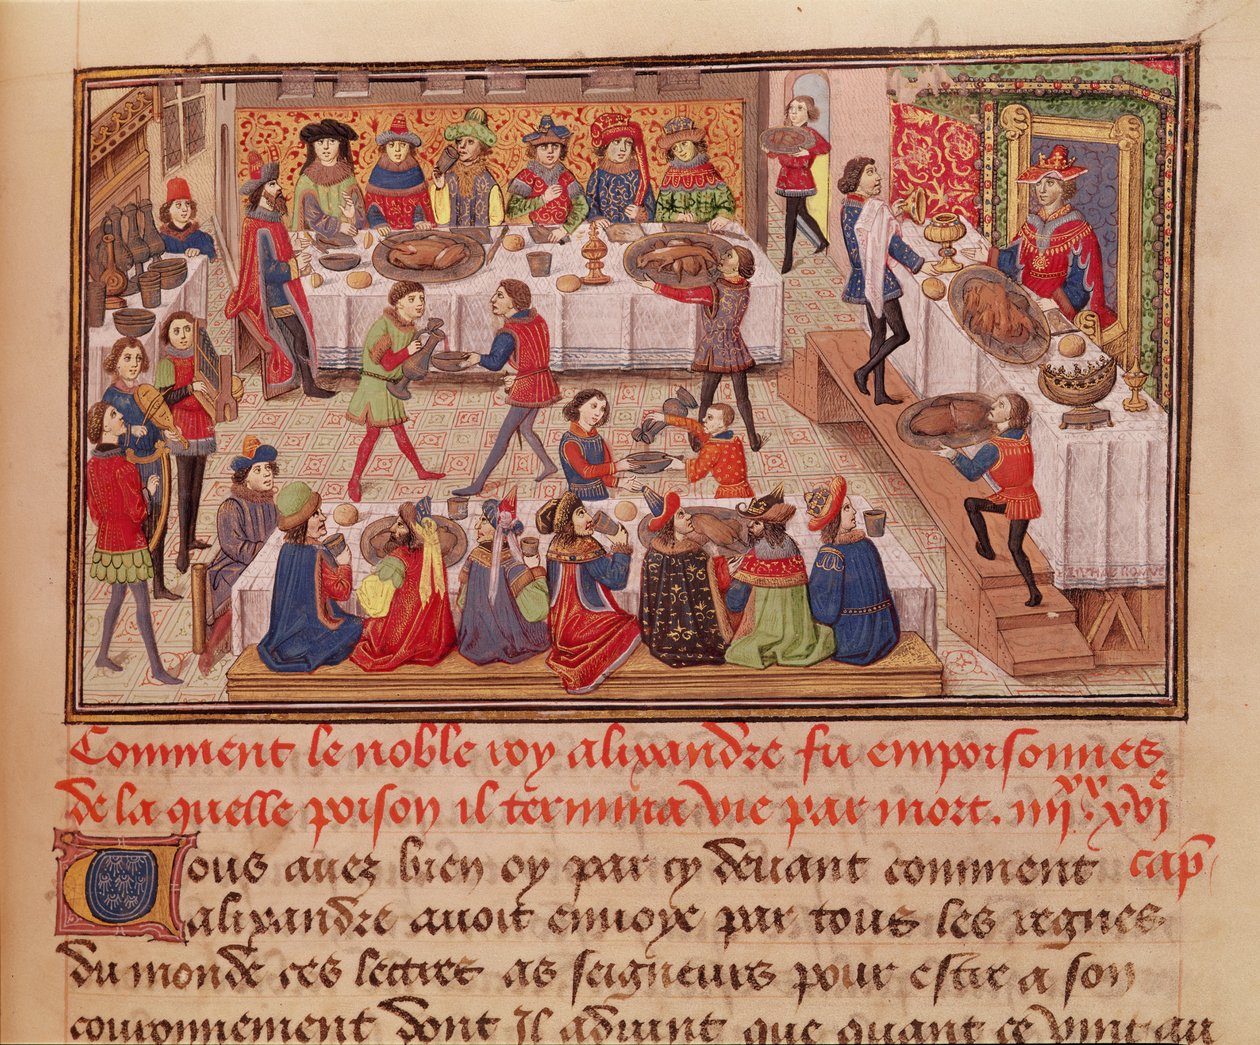 Comment le noble roy alixandre fu emporsonnes
de la quelle poison il termina vie par mort. iiijxx xvje
cap
Vous auez bien oy par cy deuant comment
alixandre auoit enuoye par tous les regnes
du monde ses lectres as seigneurs pour estre a son
couronnement dont Il aduint que quant ce vint au